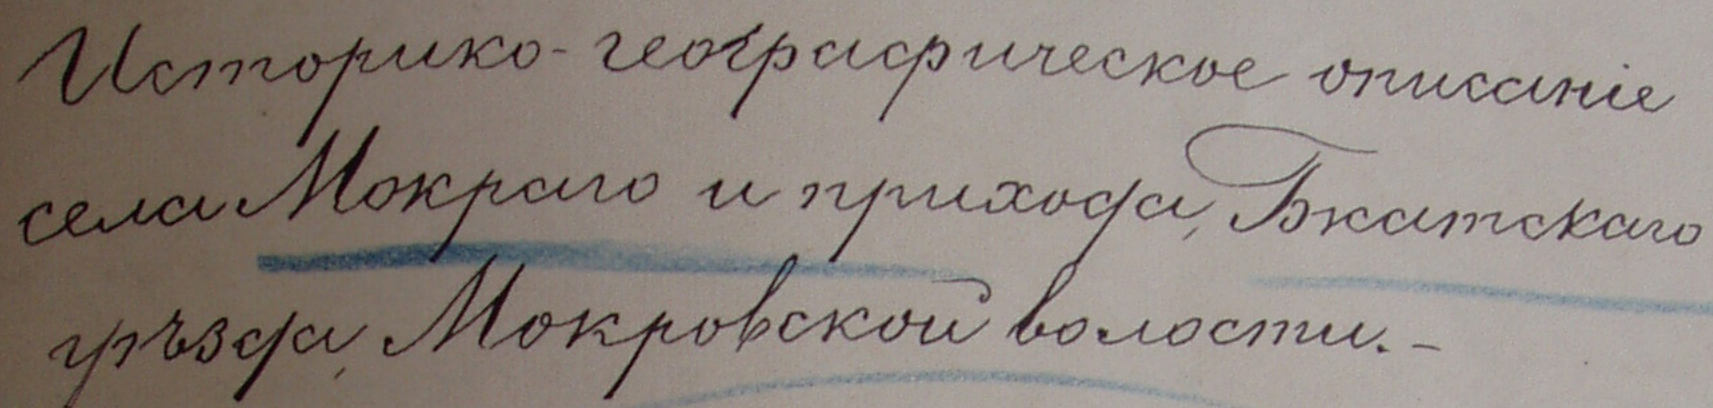 Историко-географическое описаніе
села Мокраго и прихода, Гжатскаго
уѣзда, Мокровской волости. –